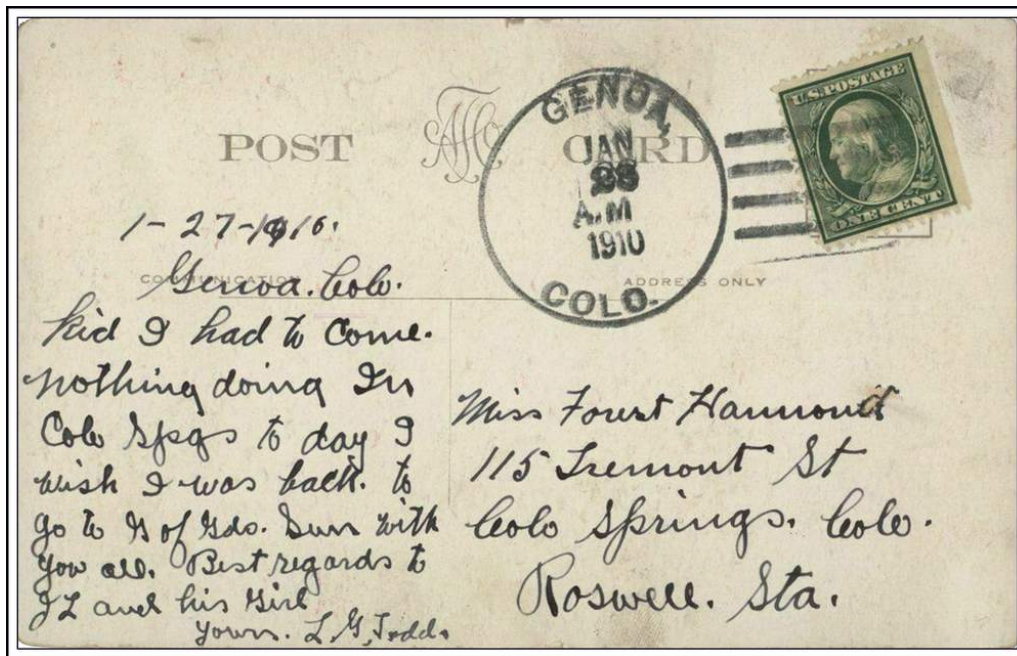 POST CARD
GENOA,
JAN
28
A.M
1910
COLO.
U.S. POSTAGE
ONE CENT
COMMUNICATION
ADDRESS ONLY
1-27-1910.
Genoa. Colo.
Kid I had to Come.
nothing doing In
Colo Spgs to day I
wish I was back. to
go to G of Gds. Sun with
you all. Best regards to
J L and his Girl
yours. L. G. Todd.
Miss Forest Hammond
115 Tremont St
Colo Springs. Colo.
Roswell. Sta.